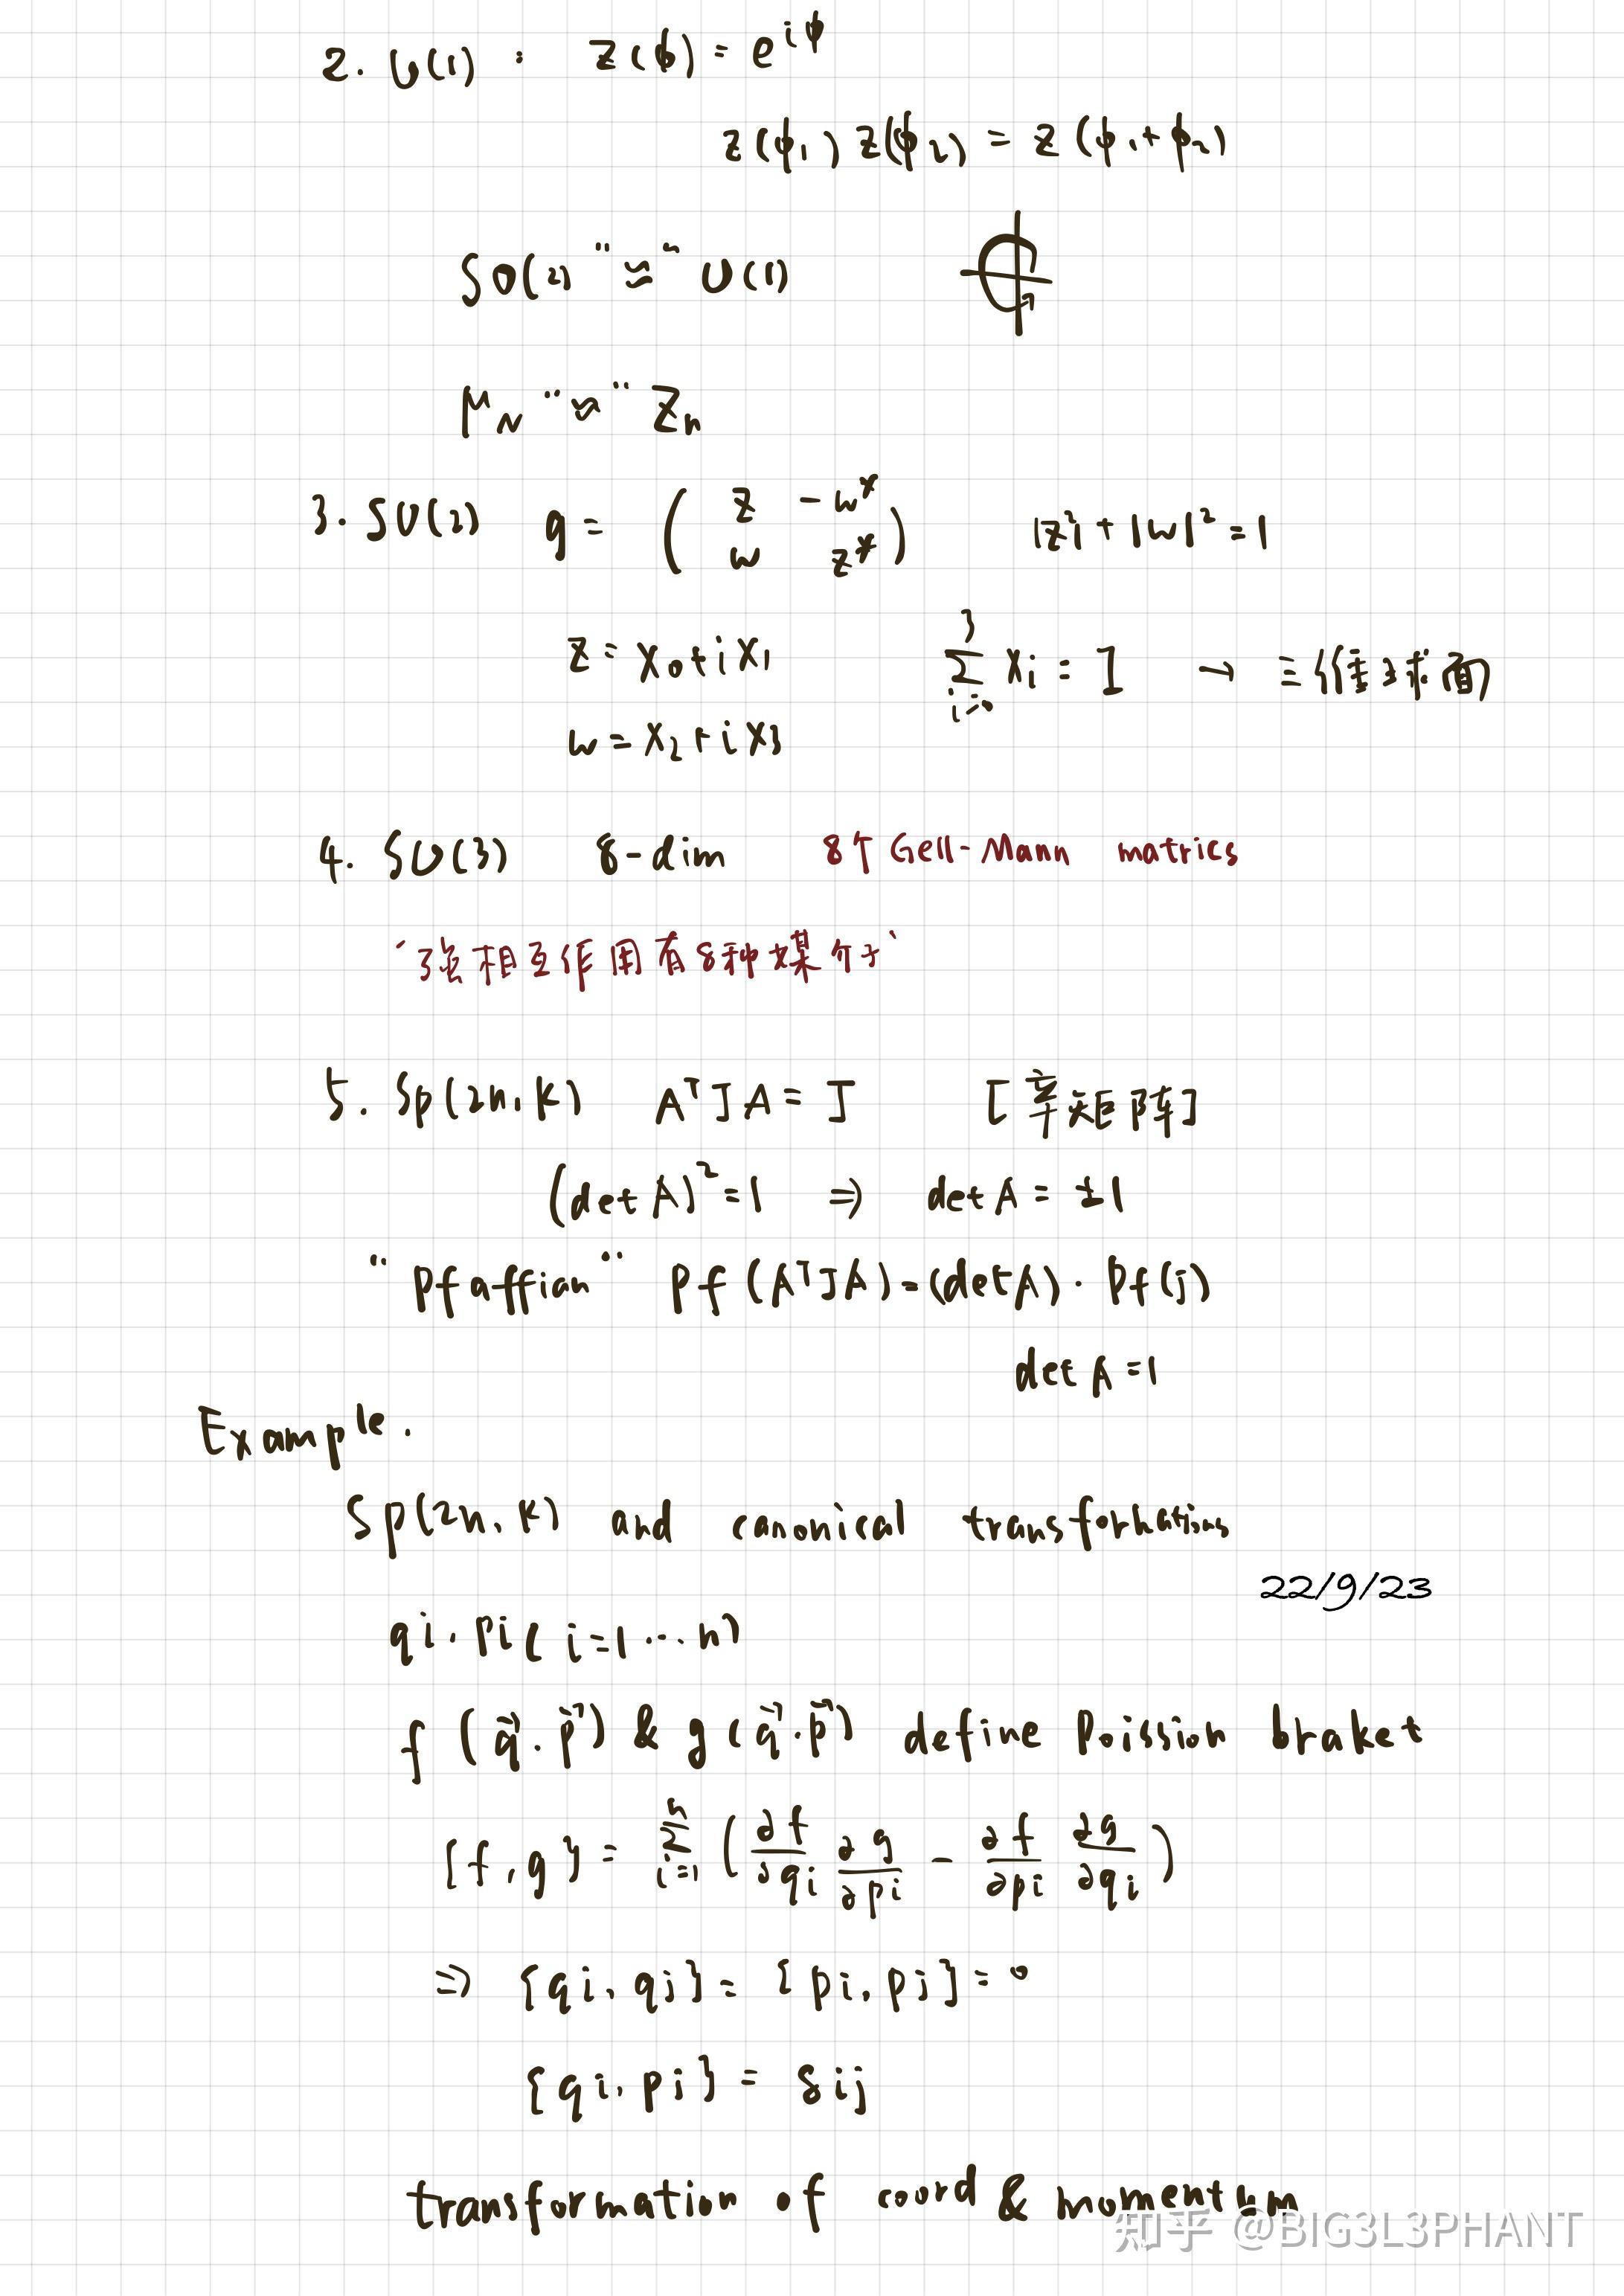 2. U(1) : z(ϕ) = e^{iϕ}
z(ϕ₁) z(ϕ₂) = z(ϕ₁+ϕ₂)
SO(2) "≈" U(1)
μ_N "≈" Z_n
3. SU(2) g = ( z -w* ; w z* ) |z²|+|w|²=1
z = x₀+ix₁ ∑_{i=0}^{3} x_i = 1 → 三维球面
w = x₂+ix₃
4. SU(3) 8-dim 8个 Gell-Mann matrics
'强相互作用有8种媒介子'
5. Sp(2n.K) AᵀJA = J [辛矩阵]
(det A)² = 1 ⇒ det A = ±1
"Pfaffian" Pf(AᵀJA) = (det A)·Pf(j)
det A = 1
Example.
Sp(2n.K) and canonical transformations
22/9/23
qi.pi( i=1···n)
f(q⃗.p⃗) & g(q⃗.p⃗) define Poission braket
{f,g} = ∑_{i=1}^{n} (∂f/∂qi ∂g/∂pi − ∂f/∂pi ∂g/∂qi)
⇒ {qi.qj} = {pi.pj} = 0
{qi.pi} = δij
transformation of coord & momentum
知乎 @BIG3L3PHANT